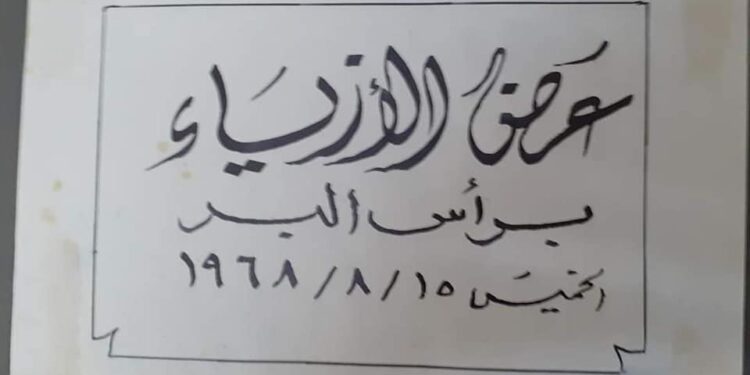 عرض الأزياء
برأس البر
الخميس ١٥ / ٨ / ١٩٦٨